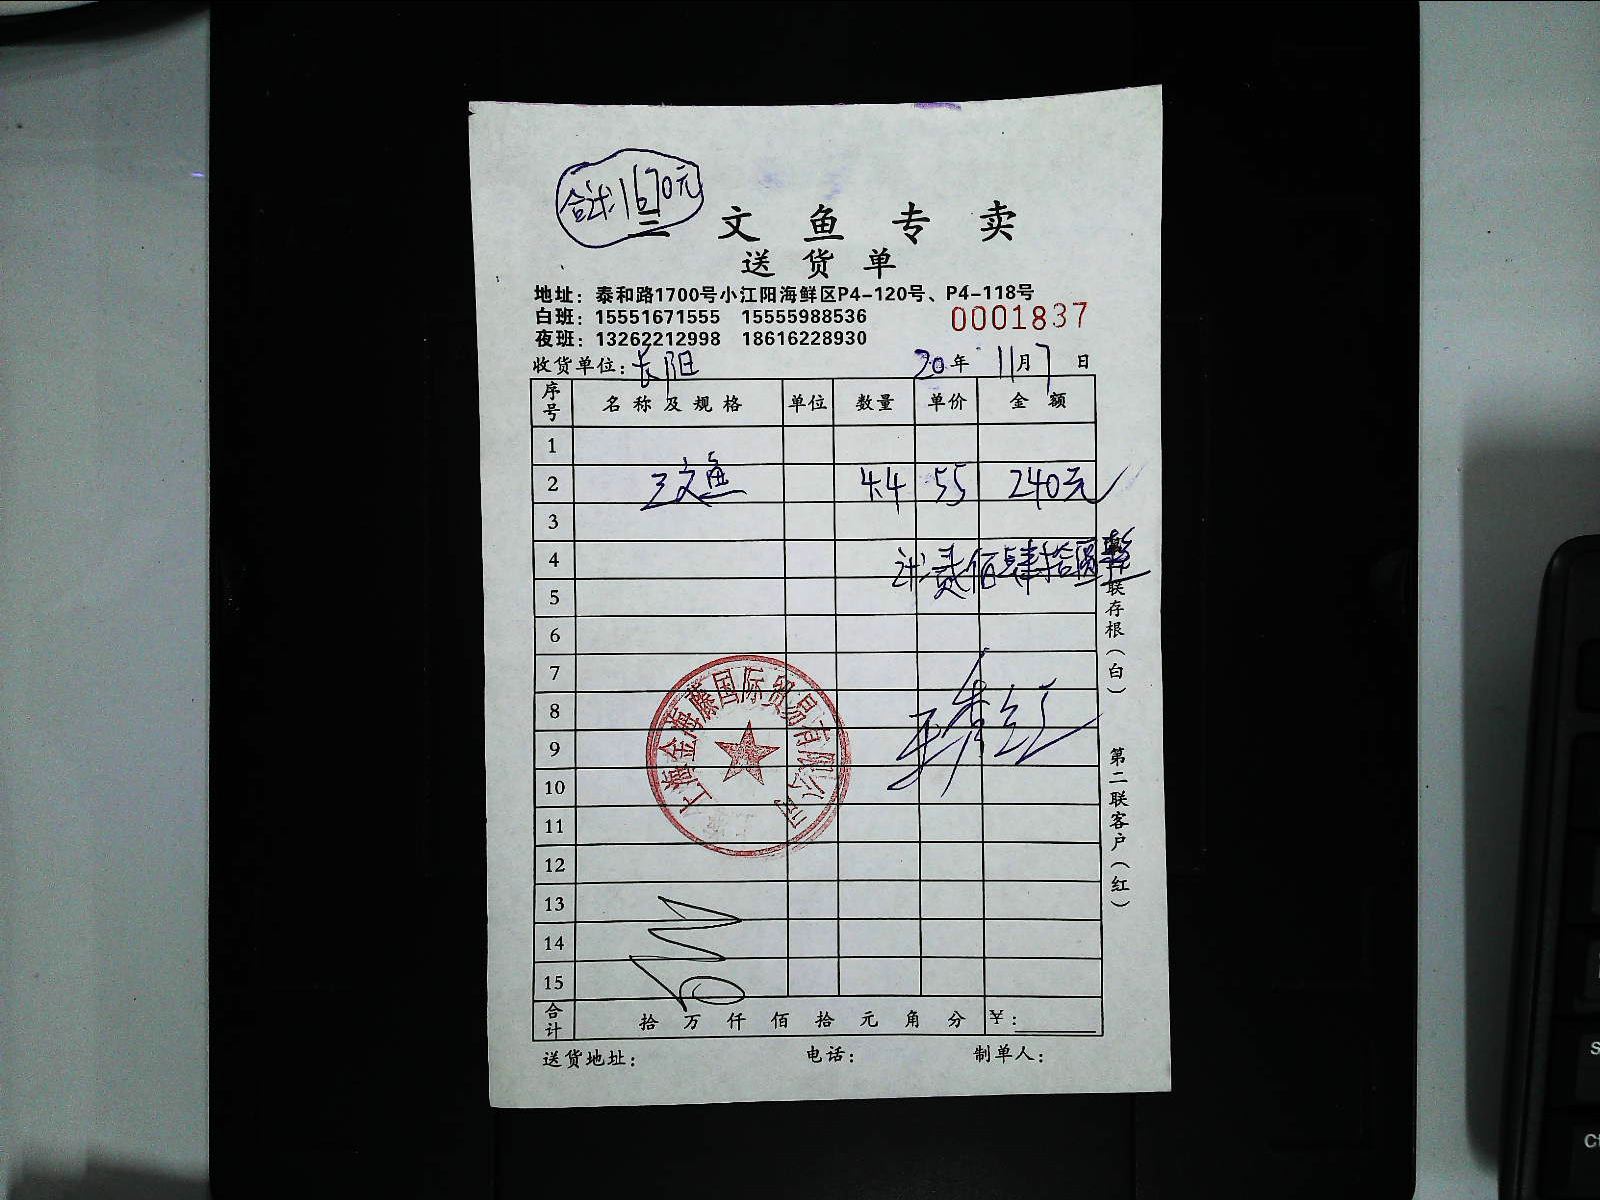 合计:1670元
三文鱼专卖
送货单
地址：泰和路1700号小江阳海鲜区P4-120号、P4-118号
白班：15551671555 15555988536
0001837
夜班：13262212998 18616228930
收货单位：长阳 20年11月7日
序号 名称及规格 单位 数量 单价 金额
1
2 三文鱼 4.4 55 240元
3
4 计:贰佰肆拾圆整
5
6
7
8
9
10
11
12
13
14
15
合计 拾万仟佰拾元角分 ￥:
送货地址： 电话： 制单人：
联存根（白）
第二联客户（红）
上海金海藤国际贸易有限公司